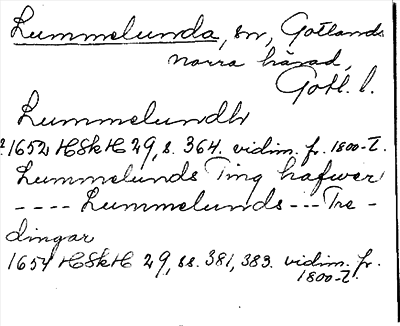 Lummelunda, sn, Gotlands
norra härad,
Gotl. l.
Lummelundh
1652 HSkH 29, s. 364. vidim. fr. 1800-t.
Lummelunds Ting hafwer
---- Lummelunds --- Tre-
dingar
1654 HSkH 29, ss. 381, 383. vidim. fr.
1800-t.